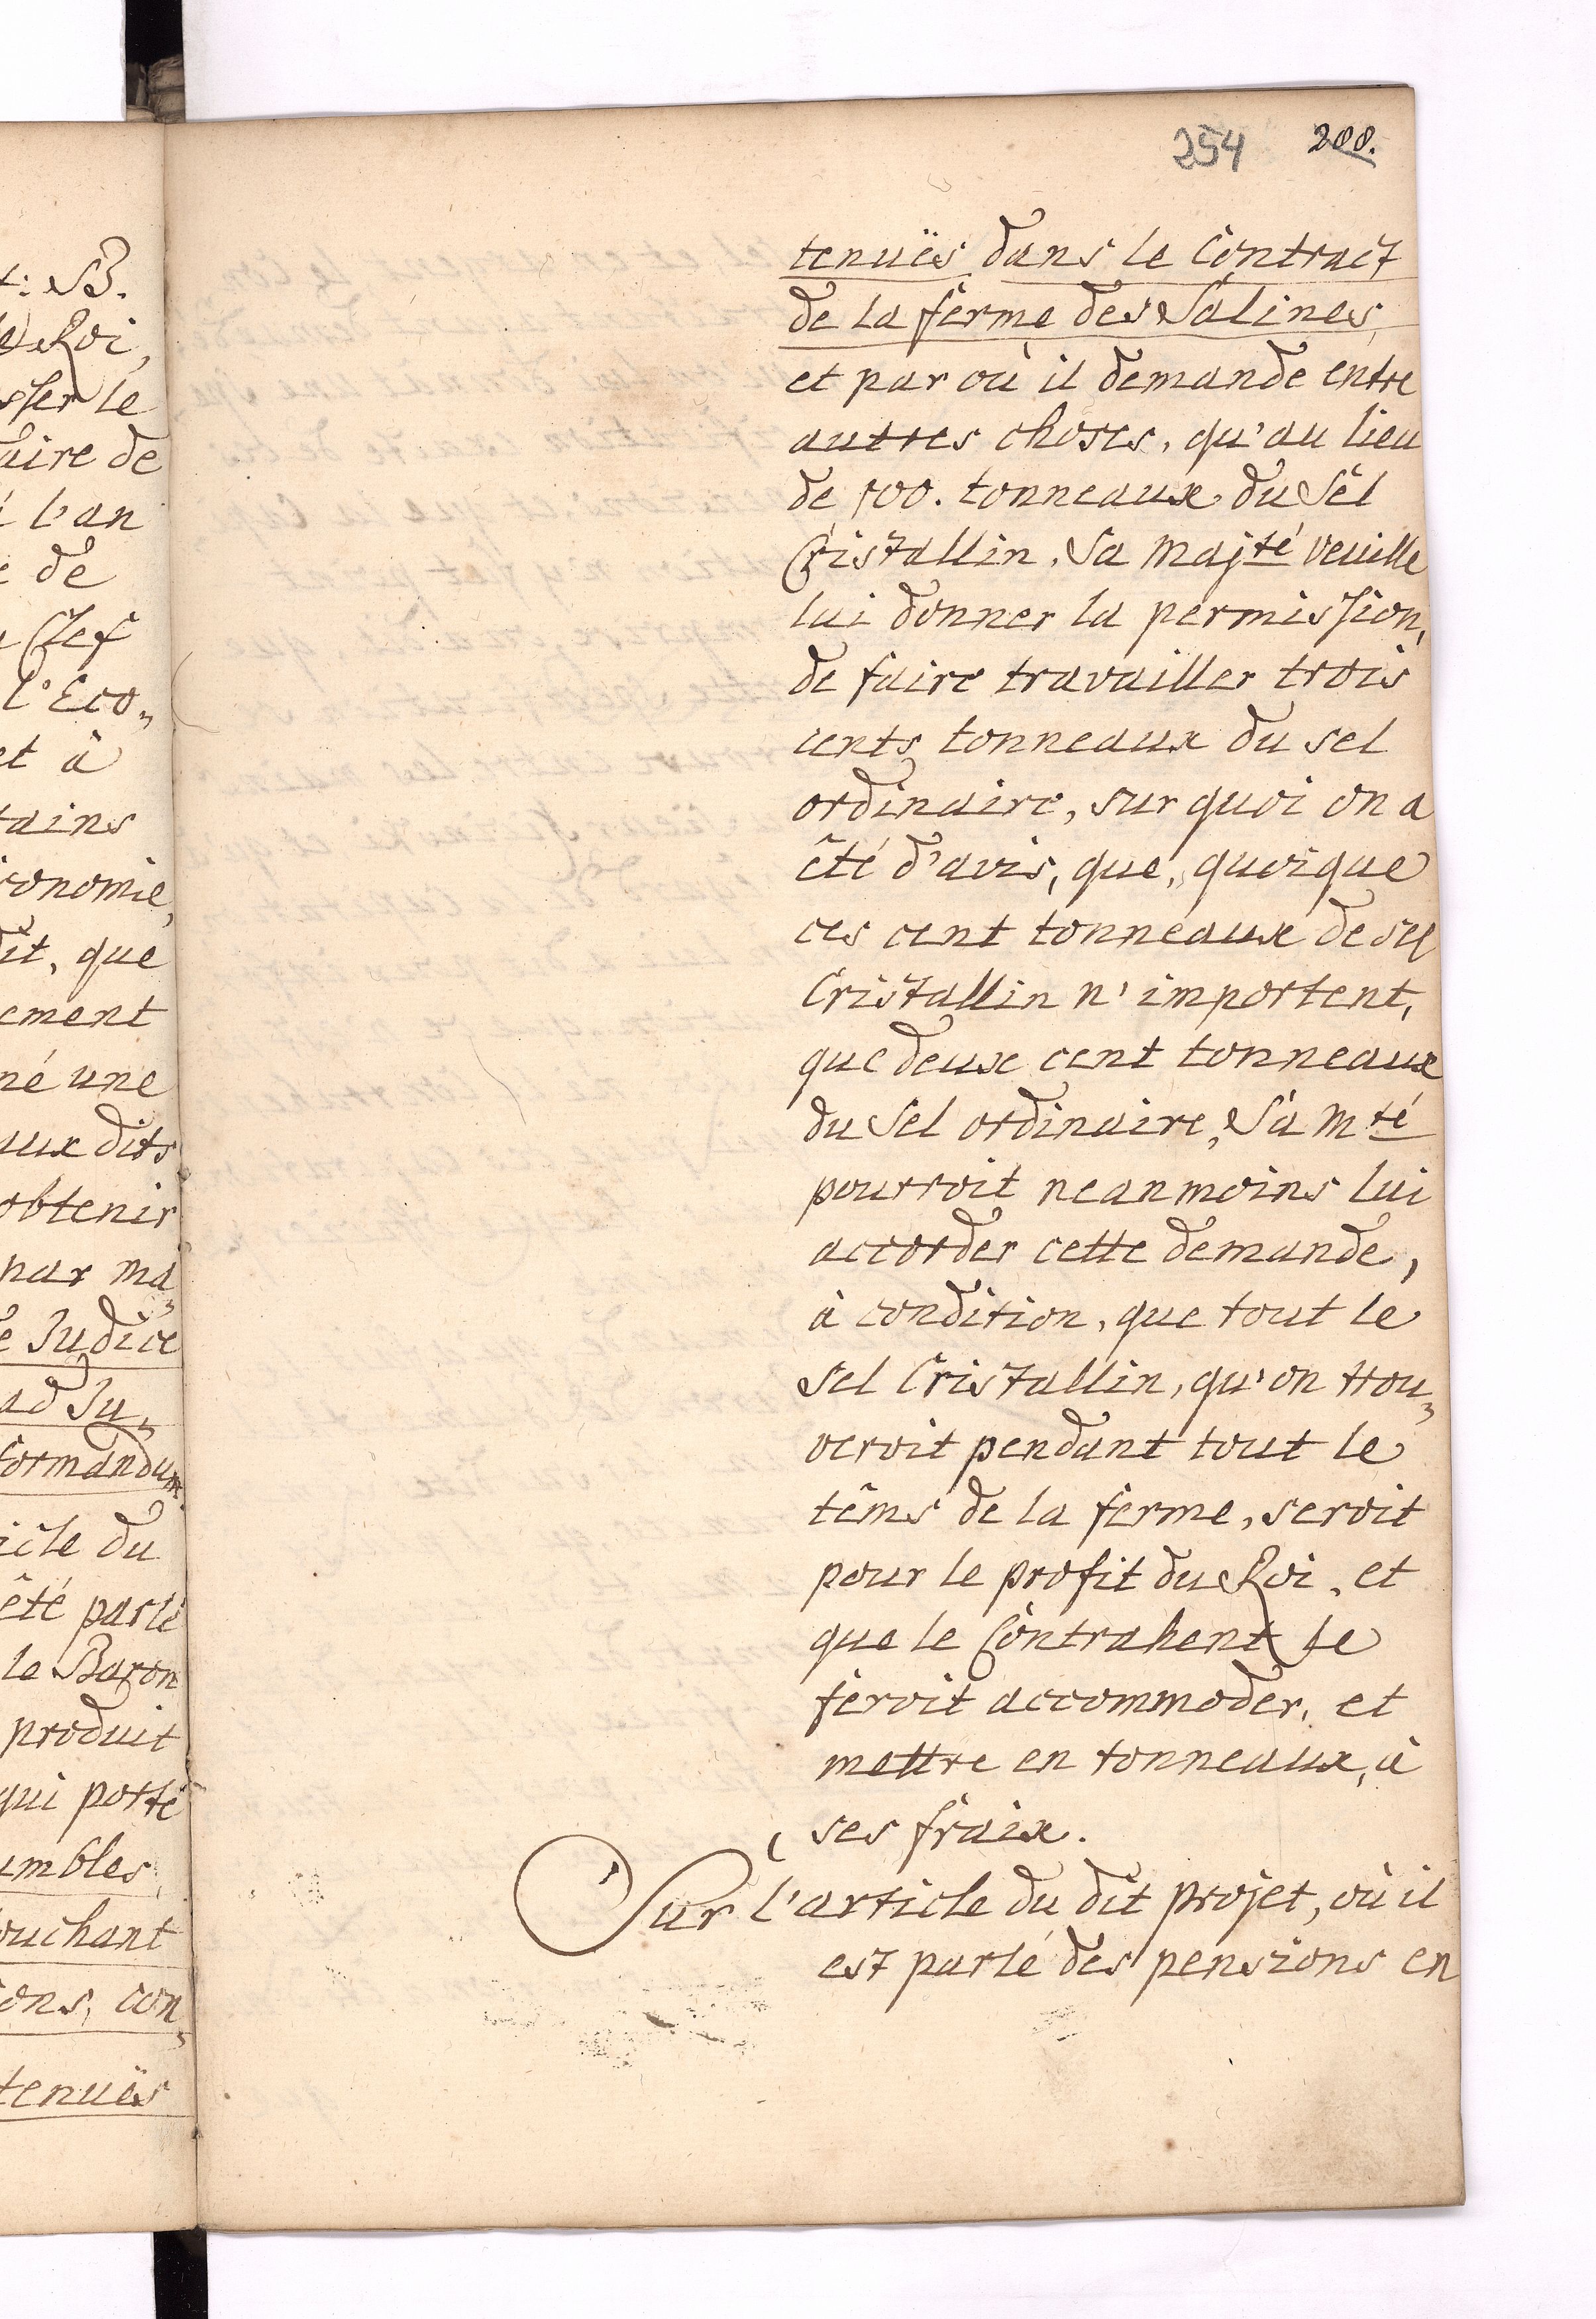 t: SB.
Roi,
ser le
aire de
l'an
de
Clef
l'Eco„
et à
tains
conomie,
dit, que
ement
né une
aux dits
obtenir
par ma„
e Judice
ad Ju„
formandum.
icle du
êté parlé
le Baron
produit
qui porte
umbles
ouchant
ions, con„
tenuës
254 208.
tenuës dans le Contract
de la ferme des Salines,
et par où il demande entre
autres choses, qu'au lieu
de 100. tonneaux du Sel
Cristallin, Sa Majté veuille
lui donner la permission,
de faire travailler trois
cents tonneaux du sel
ordinaire, sur quoi on a
êté d'avis, que, quoique
ces cent tonneaux de sel
Cristallin n'importent,
que deux cent tonneaux
du Sel ordinaire, Sa Mté
pourroit neanmoins lui
accorder cette demande,
à condition, que tout le
Sel Cristallin, qu'on trou„
veroit pendant tout le
têms de la ferme, seroit
pour le profit du Roi, et
que le Contrahent le
feroit accommoder, et
mettre en tonneaux, à
ses fraix.
Sur l'article du dit projet, où il
est parlé des pensions en